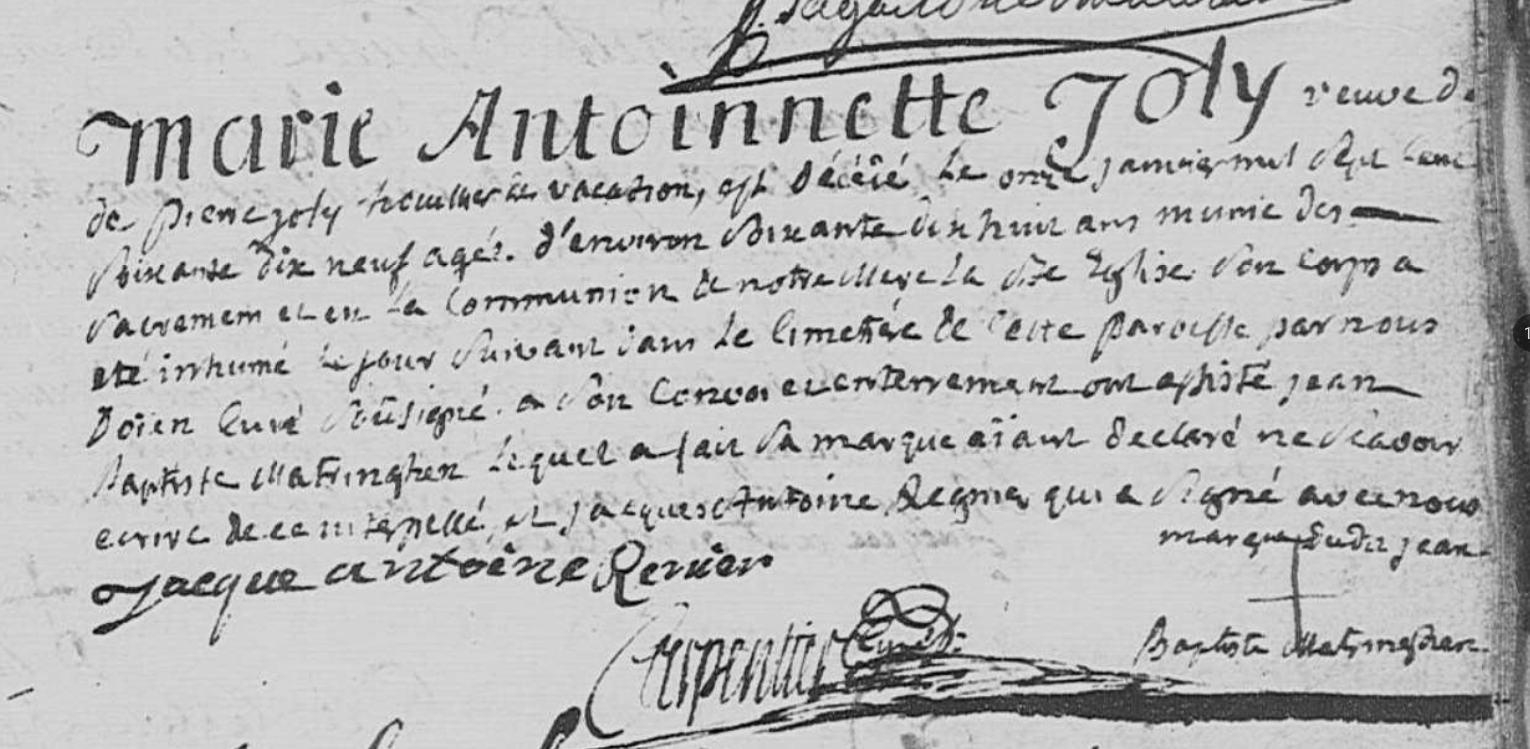 Marie Antoinnette Joly veuve de
de pierre joly houilleur de vacation, est décésé le onze janvier mil sept cent
soixante dix neuf agéz. d'environ soixante dix huit ans munie des
sacremens et en la communion de notre Mere la Ste Eglise. son corps a
eté inhumé le jour suivant dans le Cimetiére de cette paroisse par nous
Doien Curé soûsigné. a son convoi et enterrement ont assisté jean
baptiste Matringhen lequel a fait sa marque aïant declaré ne scavoir
ecrire de ce interpellé, et jacques Antoine Regnier qui a signé avec nous
marque dudit jean
Jacque antoine Renier
Carpentier Curé
Baptiste Matringhen